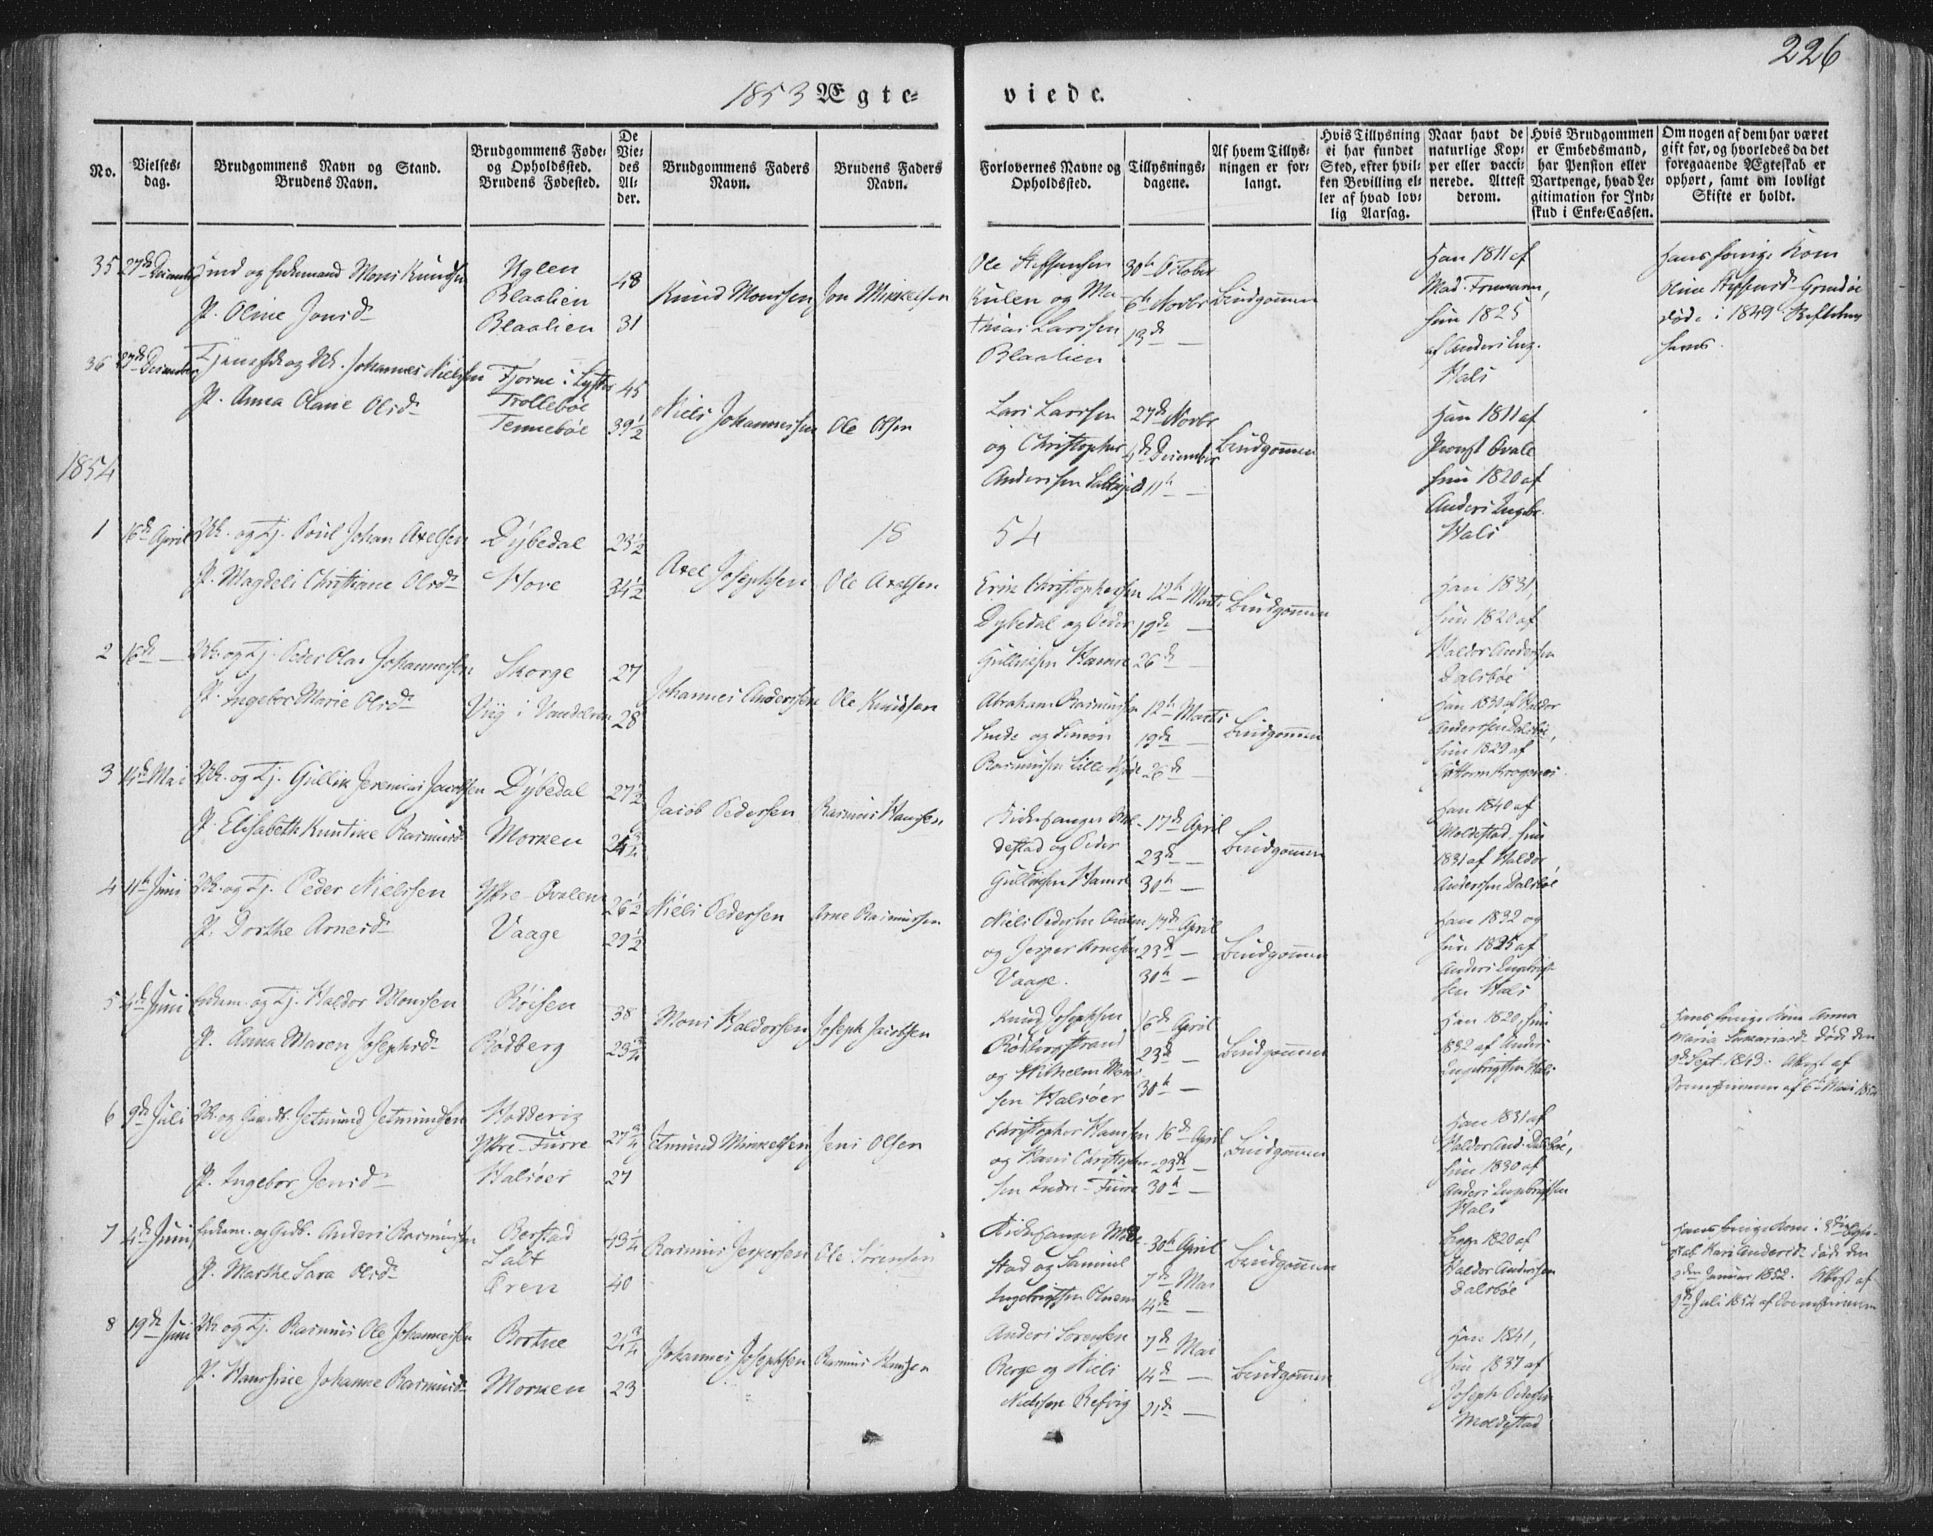 226
1853 Ægte= viede.
No.
Vielses-
dag.
Brudgommens Navn og Stand.
Brudens Navn.
Brudgommens Føde-
og Opholdssted.
Brudens Fødested.
De
Vie-
des
Al-
der.
Brudgommens Faders
Navn.
Brudens Faders
Navn.
Forlovernes Navne og
Opholdssted.
Tillysnings-
dagene.
Af hvem Tillys-
ningen er for-
langt.
Hvis Tillysning
ei har fundet
Sted, efter hvil-
ken Bevilling el-
ler af hvad lov-
lig Aarsag.
Naar havt de
naturlige Kop-
per eller vacci-
nerede. Attest
derom.
Hvis Brudgommen
er Embedsmand,
har Pension eller
Vartpenge, hvad Le-
gitimation for Ind-
skud i Enke-Cassen.
Om nogen af dem har været
gift før, og hvorledes da det
foregaaende Ægteskab er
ophørt, samt om lovligt
Skifte er holdt.
35 27de og Enkemand Mons Knudsen
P. Oline Jonsd
Uglen
Blaalien
Blaalien
48
31
Knud Monssen
Jon Mikkelsen
Ole Steffensen
Kulen og Ma-
thias Larssen
Blaalien
30th October
6th Novbr
13de —
Brudgommen
Han 1811 af
Mad.
hun 1825
af Anders Ing.
Hals
Hans forrige Kone
Oline
døde i 1849
36 27de December og Johannes Nielssen
P. Anna Olane Olsd
i Lyster
Trollebøe
Tennebøe
45
39½
Niels Johannessen
Ole Olsen
Lars Larssen
og Christopher
Anderssen
27de Novbr
4de December
11th —
Brudgommen
Han 1811 af
Provst Qvale
hun 1820 af
Anders Ingbr.
Hals
1854
18 54
1 16de April og Tj. Poul Johan Axelsen
P. Magdeli Christiane Olsd
Dybedal
Hove
23½
34½
Axel Josephsen
Ole Axelsen
Erik Christophersen
Dybedal og Peder
Gulliksen Hamre
12th Marts
19de —
26de —
Brudgommen
Han 1831,
hun 1820 af
Haldor Andersen
Dalsbøe
2 16de — og Tj. Peder Olai Johannessen
P. Ingebor Marie Olsd
Skorge
Viig i Vanelven
27
28
Johannes Anderssen
Ole Knudsen
Abraham Rasmussen
Inde og Simon
Rasmussen Lille
12th Marts
19de —
26de —
Brudgommen
Han 1830 af Haldor
Anderssen Dalsbøe,
hun 1829 af
Guttorm Krogenes
3 14de Mai og Tj. Gullik Jeremias Jacobsen
P. Elisabeth Knutine Rasmusd
Dybedal
Morken
27½
Jacob Pedersen
Rasmus Hansen
Kirkesanger Mol-
destad og Peder
Gulliksen Hamre
17th April
23de —
30th —
Brudgommen
Han 1840 af
Moldestad, hun
1831 af Haldor
Anderssen Dalsbøe
4 11th Juni og Tj. Peder Nielssen
P. Dorthe Arnesd
Ytre-Qvalen
Vaage
26½
29½
Niels Pedersen
Arne Rasmussen
Niels Pedersen Qvalen
og Jesper Arnessen
Vaage.
17th April
23de —
30th —
Brudgommen
Han 1832 og
hun 1825 af
Anders Ingebrigt-
sen Hals
5 4de Juni Enkem. og Tj. Haldor Monssen
P. Anna Maren Josephsd
Røisen
Rødberg
38
23¾
Mons Haldorssen
Joseph Jacobsen
Knud Josephsen
Rødbergstrand
og Wilhelm Mons-
sen Halsøer
16de April
23de —
30th —
Brudgommen
Han 1820, hun
1832 af Anders
Ingebrigtsen Hals
Hans forrige Kone Anna
Maria Zakariasd døde den
9de Sept. 1843. Attest af
6th Mai
6 9de Juli og Jetmund Jetmundsen
P. Ingebor Jensd
Hodderig
Ytre-Furre
Halsøer
27¾
27
Jetmund Mikkelsen
Jens Olsen
Christopher Hanssen
og Hans Christopher-
sen Indre-Furre
16de April
23de —
30th —
Brudgommen
Han 1831 af
Haldor And. Dalsbøe,
hun 1830 af
Anders Ingebrigtsen
Hals
7 4de Juni Enkem. og Gdb. Anders Rasmussen
P. Marthe Sara Olsd
Berstad
Salt
Øren
43¼
40
Rasmus Jespersen
Ole Sørensen
Kirkesanger Molde-
stad og Samuel
Ingebrigtsen
30th April
7de Mai
14de —
Brudgommen
Begge 1820 af
Haldor Andersen
Dalsbøe
Hans forrige Kone i
Kari Andersd døde den
2den Januar 1852. Attest af
9de Juli 1852 af
8 19de Juni og Tj. Rasmus Ole Johannessen
P. Hansine Johanne Rasmusd
Bortne
Morken
24¾
23
Johannes Josephsen
Rasmus Hansen
Anders Sørensen
Berge og Niels
Nielssen Refvig
7de Mai
14de —
21de —
Brudgommen
Han 1841,
hun 1837 af
Joseph Pedersen
Moldestad